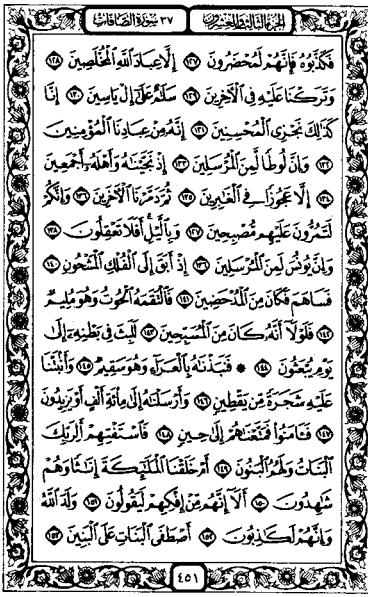 الجزء الثالث والعشرون ٣٧ سورة الصافات
فَكَذَّبُوهُ فَإِنَّهُمْ لَمُحْضَرُونَ ١٢٧ إِلَّا عِبَادَ اللَّهِ الْمُخْلَصِينَ ١٢٨
وَتَرَكْنَا عَلَيْهِ فِي الْآخِرِينَ ١٢٩ سَلَامٌ عَلَىٰ إِلْ يَاسِينَ ١٣٠ إِنَّا
كَذَٰلِكَ نَجْزِي الْمُحْسِنِينَ ١٣١ إِنَّهُ مِنْ عِبَادِنَا الْمُؤْمِنِينَ
١٣٢ وَإِنَّ لُوطًا لَّمِنَ الْمُرْسَلِينَ ١٣٣ إِذْ نَجَّيْنَاهُ وَأَهْلَهُ أَجْمَعِينَ
١٣٤ إِلَّا عَجُوزًا فِي الْغَابِرِينَ ١٣٥ ثُمَّ دَمَّرْنَا الْآخَرِينَ ١٣٦ وَإِنَّكُمْ
لَتَمُرُّونَ عَلَيْهِم مُّصْبِحِينَ ١٣٧ وَبِاللَّيْلِ أَفَلَا تَعْقِلُونَ ١٣٨
وَإِنَّ يُونُسَ لَمِنَ الْمُرْسَلِينَ ١٣٩ إِذْ أَبَقَ إِلَى الْفُلْكِ الْمَشْحُونِ ١٤٠
فَسَاهَمَ فَكَانَ مِنَ الْمُدْحَضِينَ ١٤١ فَالْتَقَمَهُ الْحُوتُ وَهُوَ مُلِيمٌ
١٤٢ فَلَوْلَا أَنَّهُ كَانَ مِنَ الْمُسَبِّحِينَ ١٤٣ لَلَبِثَ فِي بَطْنِهِ إِلَىٰ
يَوْمِ يُبْعَثُونَ ١٤٤ * فَنَبَذْنَاهُ بِالْعَرَاءِ وَهُوَ سَقِيمٌ ١٤٥ وَأَنبَتْنَا
عَلَيْهِ شَجَرَةً مِّن يَقْطِينٍ ١٤٦ وَأَرْسَلْنَاهُ إِلَىٰ مِائَةِ أَلْفٍ أَوْ يَزِيدُونَ
١٤٧ فَآمَنُوا فَمَتَّعْنَاهُمْ إِلَىٰ حِينٍ ١٤٨ فَاسْتَفْتِهِمْ أَلِرَبِّكَ
الْبَنَاتُ وَلَهُمُ الْبَنُونَ ١٤٩ أَمْ خَلَقْنَا الْمَلَائِكَةَ إِنَاثًا وَهُمْ
شَاهِدُونَ ١٥٠ أَلَا إِنَّهُم مِّنْ إِفْكِهِمْ لَيَقُولُونَ ١٥١ وَلَدَ اللَّهُ
وَإِنَّهُمْ لَكَاذِبُونَ ١٥٢ أَصْطَفَى الْبَنَاتِ عَلَى الْبَنِينَ ١٥٣
٤٥١